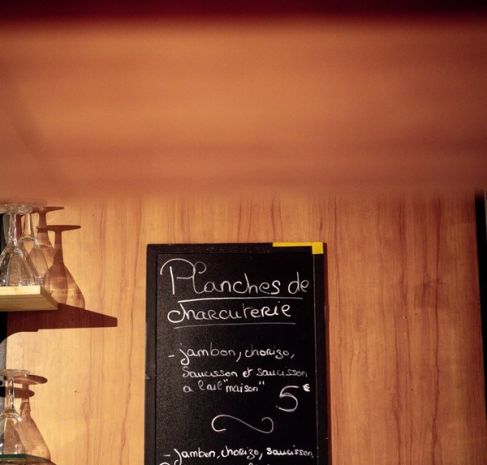 Planches de
charcuterie
- jambon, chorizo,
saucisson et saucisson
a l'ail "maison" 5€
- jambon, chorizo, saucisson